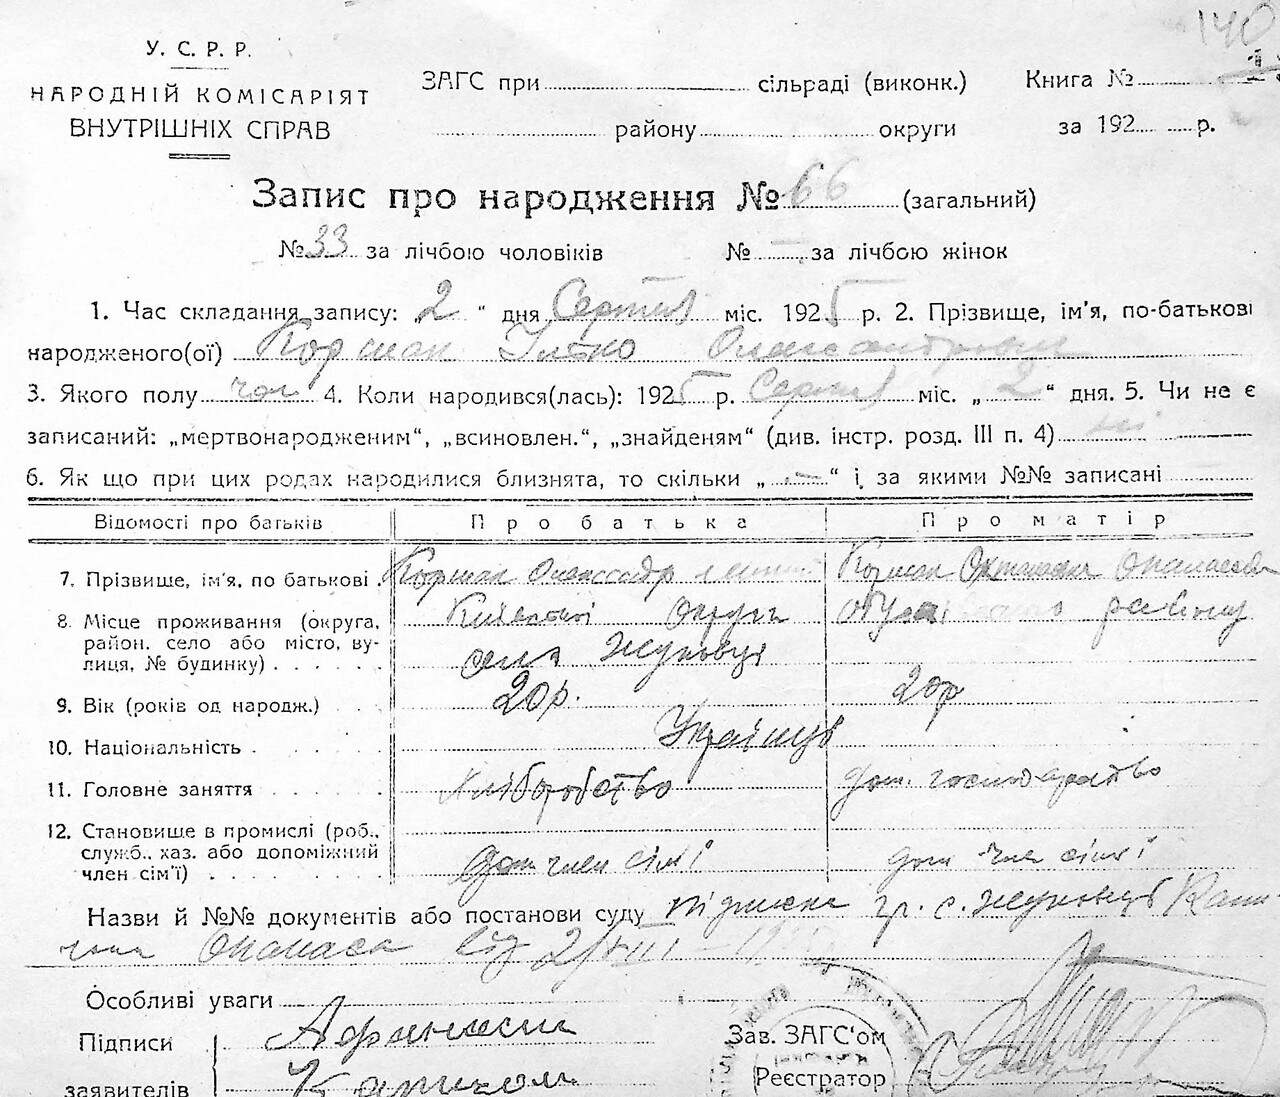 140
У. С. Р. Р.
НАРОДНІЙ КОМІСАРІЯТ
ВНУТРІШНІХ СПРАВ
ЗАГС при сільраді (виконк.) Книга №
району округи за 192 р.
Запис про народження № 66 (загальний)
№ 33 за лічбою чоловіків № — за лічбою жінок
1. Час складання запису: „2" дня Серпня міс. 1925 р. 2. Прізвище, ім'я, по-батькові
народженого(ої) Коршак Ілько Олександрович
3. Якого полу чол 4. Коли народився(лась): 1925 р. Серпня міс. „2" дня. 5. Чи не є
записаний: „мертвонародженим", „всиновлен.", „знайденям" (див. інстр. розд. III п. 4) ні
6. Як що при цих родах народилися близнята, то скільки „—" і за якими №№ записані
Відомості про батьків Про батька Про матір
7. Прізвище, ім'я, по батькові Коршак Олександр Коршак
8. Місце проживання (округа, Київської Округи району
район, село або місто, ву-
лиця, № будинку) села Жуковці
9. Вік (років од народж.) 20р. 20р
10. Національність Українці
11. Головне заняття Хліборобство дом. господарство
12. Становище в промислі (роб.,
служб., хаз. або допоміжний
член сім'ї) дом член сім'ї дом член сім'ї
Назви й №№ документів або постанови суду підписка гр. с. Жуковці
Опанаса від 2/VIII
Особливі уваги
Підписи
заявителів
Зав. ЗАГС'ом
Реєстратор